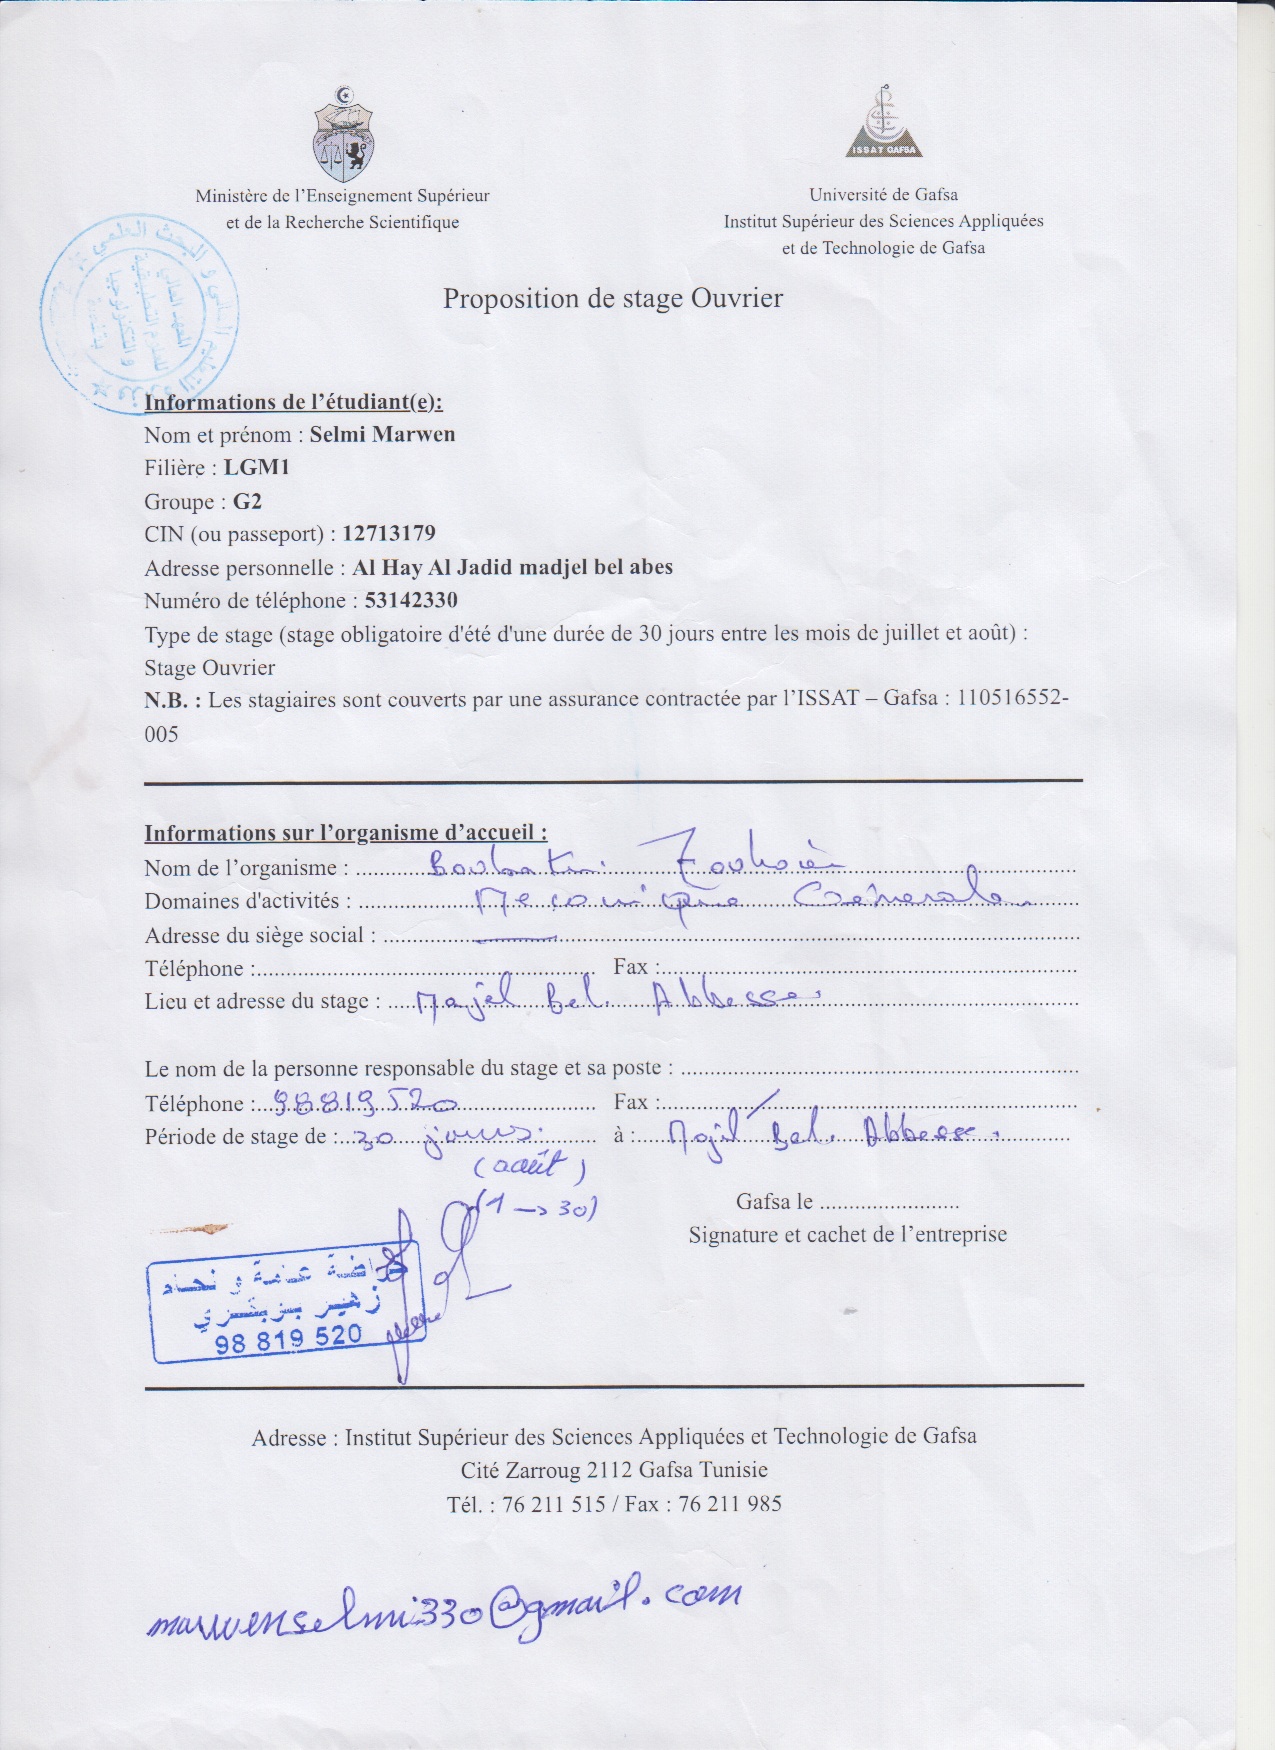 ISSAT GAFSA
Ministère de l'Enseignement Supérieur
et de la Recherche Scientifique
Université de Gafsa
Institut Supérieur des Sciences Appliquées
et de Technologie de Gafsa
Proposition de stage Ouvrier
المعهد العالي
للعلوم التطبيقية
و التكنولوجيا
بقفصة
Informations de l'étudiant(e):
Nom et prénom : Selmi Marwen
Filière : LGM1
Groupe : G2
CIN (ou passeport) : 12713179
Adresse personnelle : Al Hay Al Jadid madjel bel abes
Numéro de téléphone : 53142330
Type de stage (stage obligatoire d'été d'une durée de 30 jours entre les mois de juillet et août) :
Stage Ouvrier
N.B. : Les stagiaires sont couverts par une assurance contractée par l'ISSAT – Gafsa : 110516552-
005
Informations sur l'organisme d'accueil :
Nom de l'organisme :
Domaines d'activités : Mecanique Generale
Adresse du siège social :
Téléphone : Fax :
Lieu et adresse du stage : Majel Bel Abbesse
Le nom de la personne responsable du stage et sa poste :
Téléphone : 98819520 Fax : /
Période de stage de : 30 jours. à : Majel Bel Abbesse.
(août)
(1 -> 30)
Gafsa le
Signature et cachet de l'entreprise
خراطة عامة و لحام
زهير
98 819 520
Adresse : Institut Supérieur des Sciences Appliquées et Technologie de Gafsa
Cité Zarroug 2112 Gafsa Tunisie
Tél. : 76 211 515 / Fax : 76 211 985
marwenselmi330@gmail.com